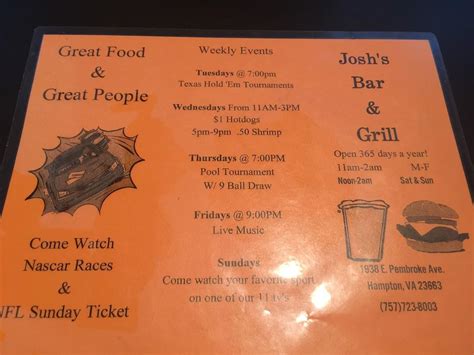 Great Food
&
Great People
Come Watch
Nascar Races
&
NFL Sunday Ticket
Weekly Events
Tuesdays @ 7:00pm
Texas Hold 'Em Tournaments
Wednesdays From 11AM-3PM
$1 Hotdogs
5pm-9pm .50 Shrimp
Thursdays @ 7:00PM
Pool Tournament
W/ 9 Ball Draw
Fridays @ 9:00PM
Live Music
Sundays
Come watch your favorite sport
on one of our 11
Josh's
Bar
&
Grill
Open 365 days a year!
11am-2am M-F
Noon-2am Sat & Sun
1938 E. Pembroke Ave.
Hampton, VA 23663
(757)723-8003